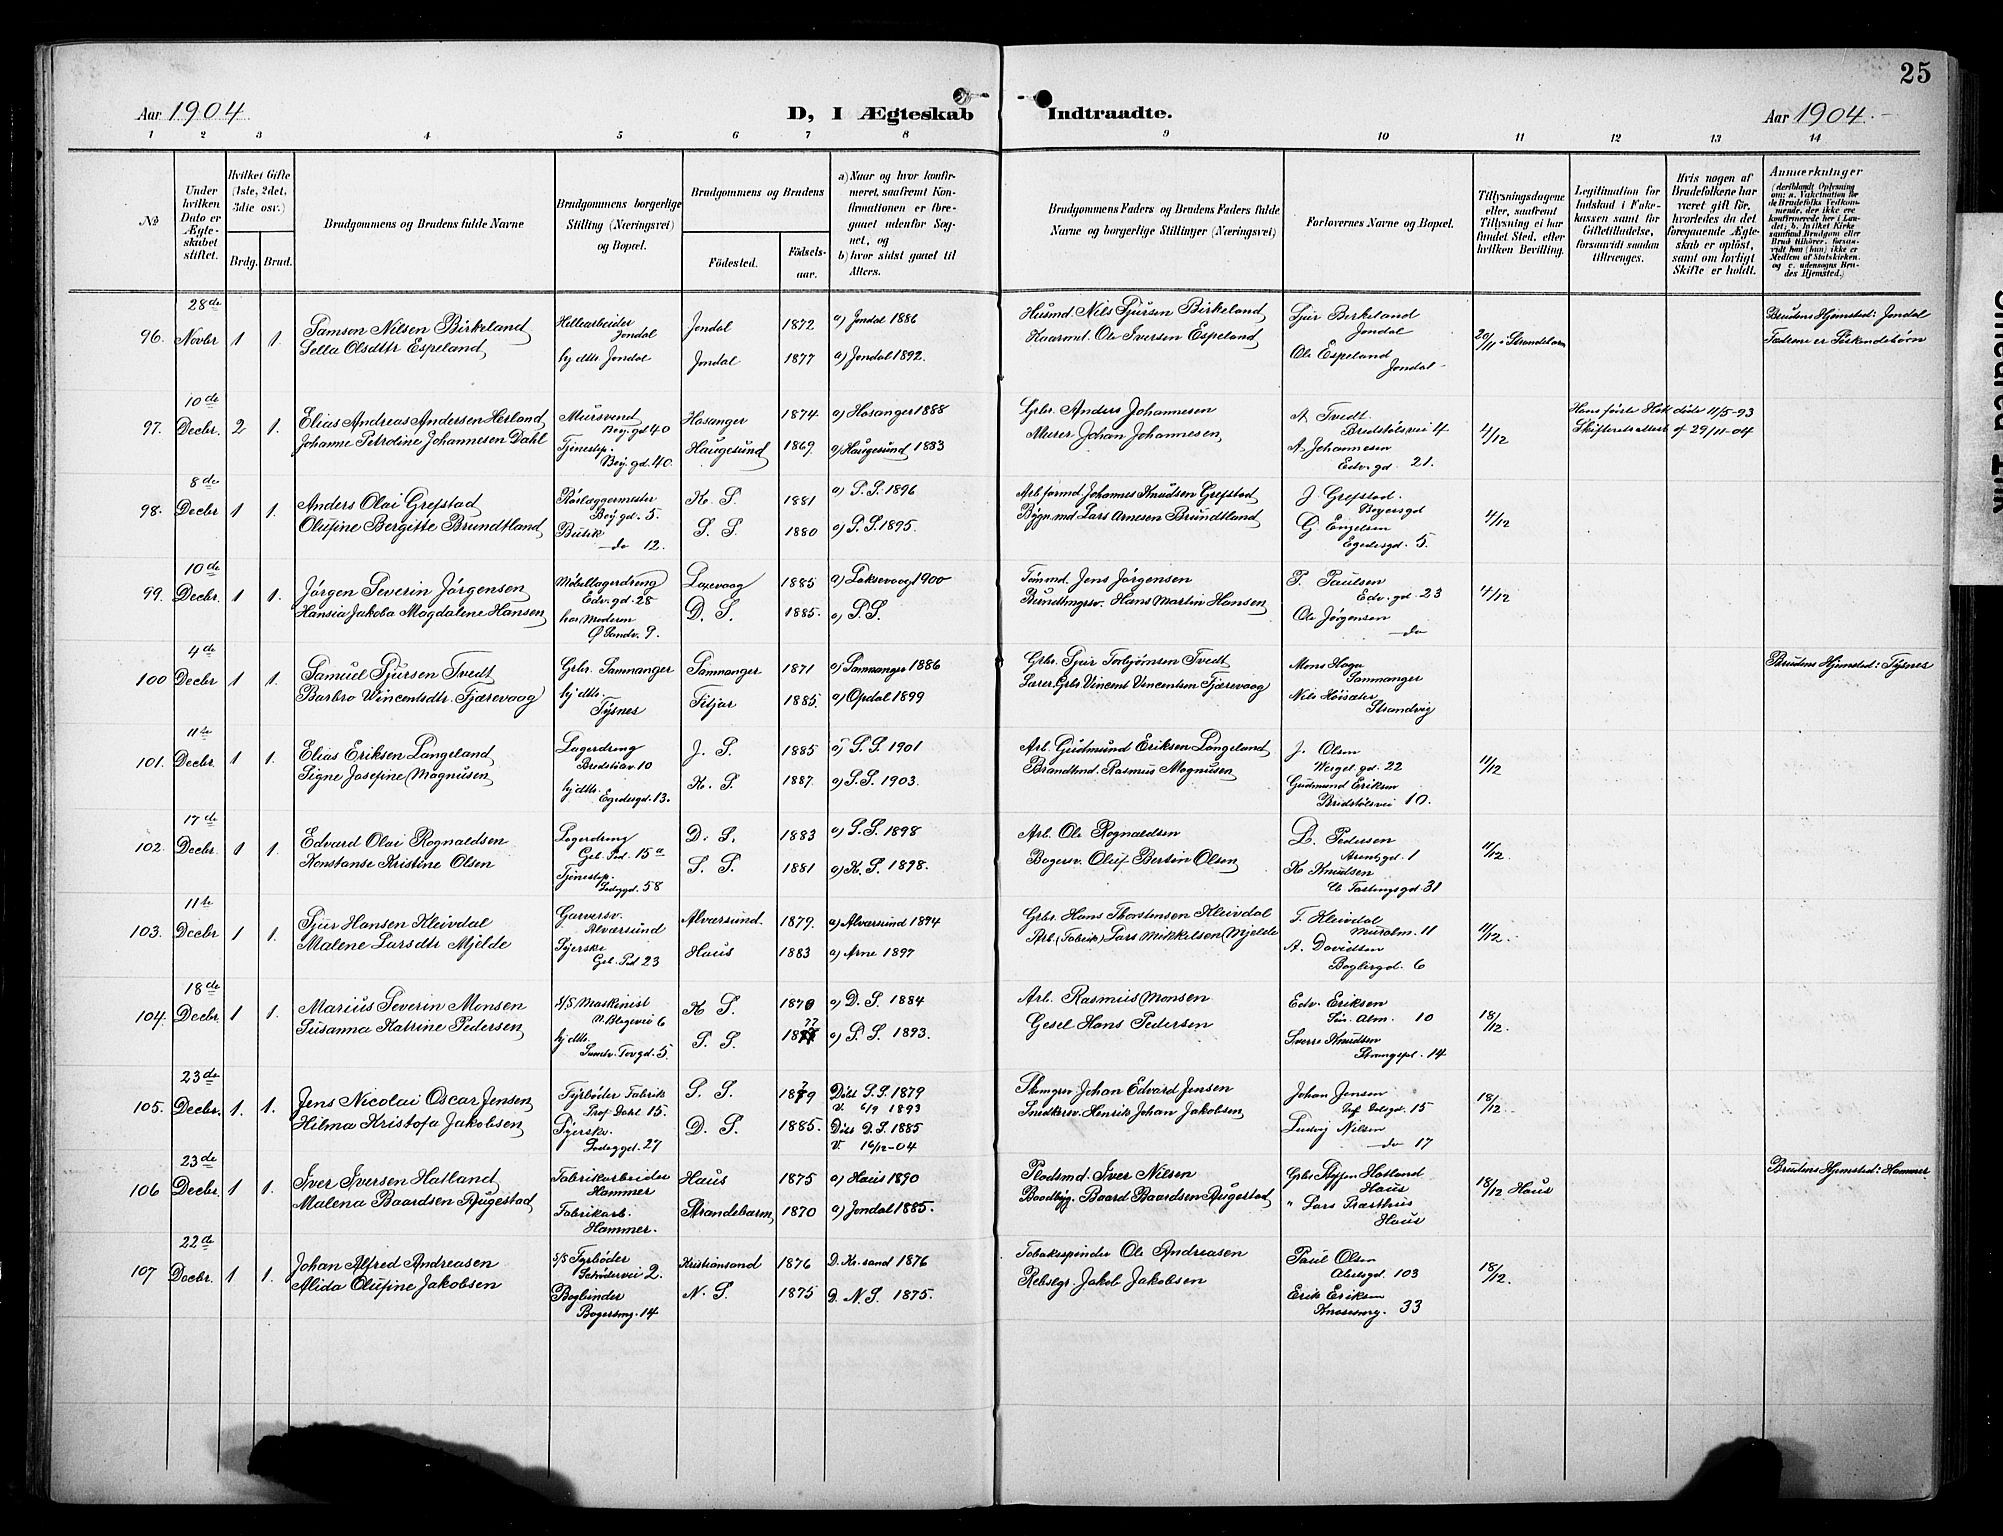 25
Aar 1904
D, I Ægteskab Indtraadte.
Aar 1904.
1 2 3 4 5 6 7 8 9 10 11 12 13 14
No.
Under hvilken Dato er Ægteskabet stiftet.
Hvilket Gifte (1ste, 2det, 3die osv.)
Brdg. Brud.
Brudgommens og Brudens fulde Navne
Brudgommens borgerlige Stilling (Næringsvei) og Bopæl.
Brudgommens og Brudens
Födested. Födselsaar.
a) Naar og hvor konfirmeret, saafremt Konfirmationen er foregaaet udenfor Sognet, og
b) hvor sidst gaaet til Alters.
Brudgommens Faders og Brudens Faders fulde Navne og borgerlige Stillinger (Næringsvei)
Forlovernes Navne og Bopæl.
Tillysningsdagene eller, saafremt Tillysning ei har fundet Sted, efter hvilken Bevilling.
Legitimation for Indskud i Enkekassen samt for Giftetilladelse, forsaavidt saadan tiltrænges.
Hvis nogen af Brudefolkene har været gift før, hvorledes da det foregaaende Ægteskab er opløst, samt om lovligt Skifte er holdt.
Anmærkninger
96. 28de Novbr 1 1.
Samson Nilsen Birkeland
Sella Olsdttr Espeland
Hellearbeider Jondal
hj dttr. Jondal
Jondal 1872 a) Jondal 1886
Jondal 1877 a) Jondal 1892.
Husmd Nils Sjursen Birkeland
Kaarmd. Ole Iversen Espeland
Sjur Birkeland Jondal
Ole Espeland Jondal
20/11 i Strandebarm
Brudens Hjemsted: Jondal
Fædrene er Søskendebørn
97. 10de Decbr. 2 1.
Elias Andreas Andersen Herland
Johanne Petrdine Johannesen Dahl
Mursvend Bøy. gd 40
Tjenestep. Bøy. gd. 40.
Hosanger 1874. a) Hosanger 1888
Haugesund 1869 a) Haugesund 1883
Grbr. Anders Johannesen
Murer Johan Johannesen
A. Tvedt. Bredstølsvei 4
A. Johannesen Edv. gd 21.
4/12
Hans første Hak døde 11/5-93
Skifteretsattest af 29/11-04
98. 8de Decbr 1 1.
Anders Olai Grefstad
Olufine Bergitte Brundtland
Rørlæggermester Bøy gd. 5.
Butik do 12.
K. S. 1881 a) S. S. 1896
S. S. 1880 a) S. S. 1895.
Arb. formd. Johannes Knudsen Grefstad
Bygn. md Lars Arnesen Brundtland
J. Grefstad. Bøyersgd
G. Engelsen Egedesgd. 5.
4/12
99. 10de Decbr. 1 1.
Jørgen Severin Jørgensen
Hansia Jakoba Magdalene Hansen
Møbellagerdreng Edv. gd. 28
hos Moderen Ø Sandv. 9.
Laxevaag 1885 a) Laksevaag 1900
D. S. 1885. a) S. S.
Tømmd. Jens Jørgensen
Hans Martin Hansen
P. Paulsen Edv. gd. 23
Ole Jørgensen do
4/12
100 4de Decbr 1 1.
Samuel Sjursen Tvedt
Barbro Vincentsdtr. Tjærevaag
Grbr. Samnanger
hj dttr. Tysnes
Samnanger 1871 a) Samnanger 1886
Fitjar 1885. a) Opdal 1899
Grbr. Sjur Torbjørnsen Tvedt
Lærer, Grbr Vincent Vincentsen Tjærevaag
Mons Haga Samnanger
Nils Høisæter Strandvig
Brudens Hjemsted: Tysnes
101. 11te Decbr 1 1.
Elias Eriksen Langeland
Signe Josefine Magnusen
Lagerdreng Bredstølsv. 10
hj dttr. Egedesgd. 13.
J. S. 1885 a) S. S. 1901
K. S. 1887. a) S. S. 1903.
Arb. Gudmund Eriksen Langeland
Brandkmd. Rasmus Magnusen
J. Olsen Wergel. gd. 22
Gudmund Eriksen Bredstølsvei 10.
11/12
102. 17de Decbr. 1 1.
Edvard Olai Rognaldsen
Konstanse Kristine Olsen
Lagerdreng Geb. Ped. 15a
Tjenestep. 58
D. S. 1883 a) S. S. 1898
S. S. 1881 a) K. S. 1898.
Arb. Ole Rognaldsen
Bagersv. Oluf Bertin Olsen
Pedersen 1
K Knudsen 31
11/12.
103. 11te Decbr 1 1.
Sjur Hansen Kleivdal
Malene Larsdtr Mjelde
Garversv. Alværsund
Syerske Geb. Pd 23
Alværsund. 1879. a) Alværsund 1894
Haus 1883 a) Arne 1897
Grbr. Hans Thorstensen Kleivdal
Arb. (Fabrik) Lars Mikkelsen Mjelde
T. Kleivdal Muralm. 11
A. Davidsen 6
11/12.
104. 18de Decbr 1 1.
Marius Severin Monsen
Susanna Katrine Pedersen
S/S Maskinist N. Blegevei 6
hj dttr. Sandv. Torvgd. 5.
K S. 1870 a) D. S. 1884
S. S. 1877 a) S. S. 1893.
Arb. Rasmus Monsen
Gesel Hans Pedersen
Edv. Eriksen Alm. 10
Sverre Knudsen Strangepl. 14
18/12.
105. 23de Decbr. 1. 1.
Jens Nicolai Oscar Jensen
Helma Kristofa Jakobsen
Fyrbøder Fabrik Prof. Dahl. 15.
Syerske 27
S. S. 1879 Døbt S. S. 1879 V. 6/9 1893
D. S. 1885. Døbt D. S. 1885 V. 16/12-04
Johan Edvard Jensen
Snedkersv. Henrik Johan Jakobsen
Johan Jensen 15
Ludvig Nilsen do 17
18/12.
106 23de Decbr 1 1.
Iver Iversen Hatland
Malena Baardsen Augestad
Fabrikarbeider Hammer
Fabrikarb. Hammer.
Haus 1875 a) Haus 1890
Strandebarm 1870 a) Jondal 1885.
Pladsmd. Iver Nilsen
Baadbyg. Baard Baardsen Augestad
Grbr Steffen Hatland Haus
" Lars Præsthus Haus
18/12 Haus
Brudens Hjemsted: Hammer
107 22de Decbr. 1 1.
Johan Alfred Andreasen
Alida Olufine Jakobsen
S/S Fyrbøder Schrødervei 2.
Bogbinder 14
Kristiansand 1876 D. Kr. sand 1876
N. S. 1875 D. N. S. 1875.
Tobakspinder Ole Andreasen
Rebslgr. Jakob Jakobsen
Paul Olsen 103
Erik Eriksen 33
18/12.